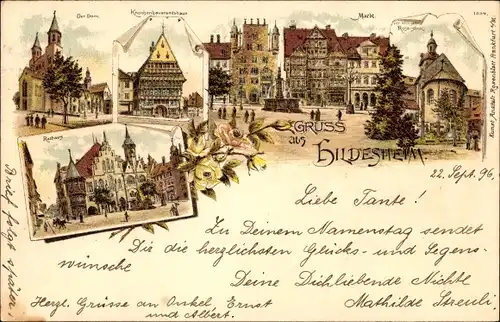 Der Dom.
Knochenhaueramtshaus
Markt.
Rosenstock.
Rathaus
GRUSS
aus
HILDESHEIM.
22. Sept. 96.
Liebe Tante!
Zu Deinem Namenstag sendet
Dir die herzlichsten Glücks- und Segens-
wünsche
Deine Dichliebende Nichte
Herzl. Grüsse an Onkel, Ernst
Mathilde Streuli.
und Albert.
Brief folgt später.
Kunst-Anstalt Rosenblatt, Frankfurt a/M.